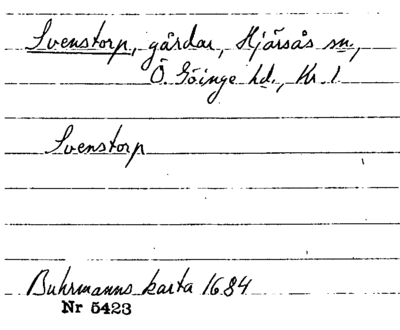 Svenstorp, gårdar, Hjärsås sn.,
Ö. Göinge hd., Kr. l.
Svenstorp
Buhrmanns karta 1684
Nr 5423